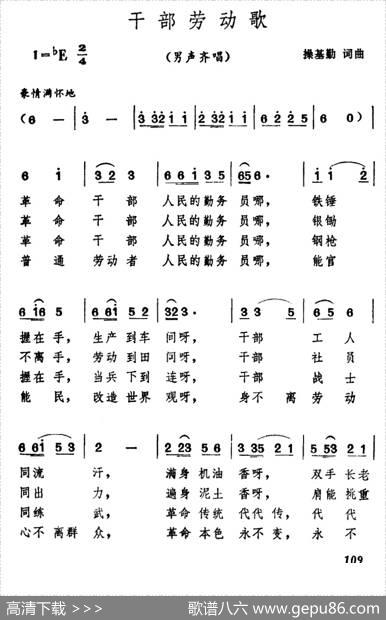 干部劳动歌
1=♭E 2/4
(男声齐唱)
操基勤 词曲
豪情满怀地
(6 — | 3 — | 3 3 2 1 1 | 3 3 2 1 1 | 6 1 2 3 1 | 6 2 2 5 | 6 0)
6 i | 3 2 3 | 6 6 i 3 5 | 6 5 6. | i i 2
革命 干部 人民的勤务 员哪, 铁锤
革命 干部 人民的勤务 员哪, 银锄
革命 干部 人民的勤务 员哪, 钢枪
普通 劳动者 人民的勤务 员哪, 能官
6 i6 5 | 6 6i 5 2 | 3 2 3. | 3 3 5 | 6 i 5
握在手, 生产到车 间呀, 干部 工人
不离手, 劳动到田 间呀, 干部 社员
握在手, 当兵下到 连呀, 干部 战士
能民, 改造世界 观呀, 身不离劳动
6 6i 5 3 | 2 — | 2 23 5 5 | 3 35 2 1 | 5 53 2 1
同流 汗, 满身机油 香呀, 双手长老
同出 力, 遍身泥土 香呀, 肩能挑重
同练 武, 革命传统 代代传, 代代
心不离群 众, 革命本色 永不变, 永不
109
高清下载 >>>
歌谱八六 www.gepu86.com